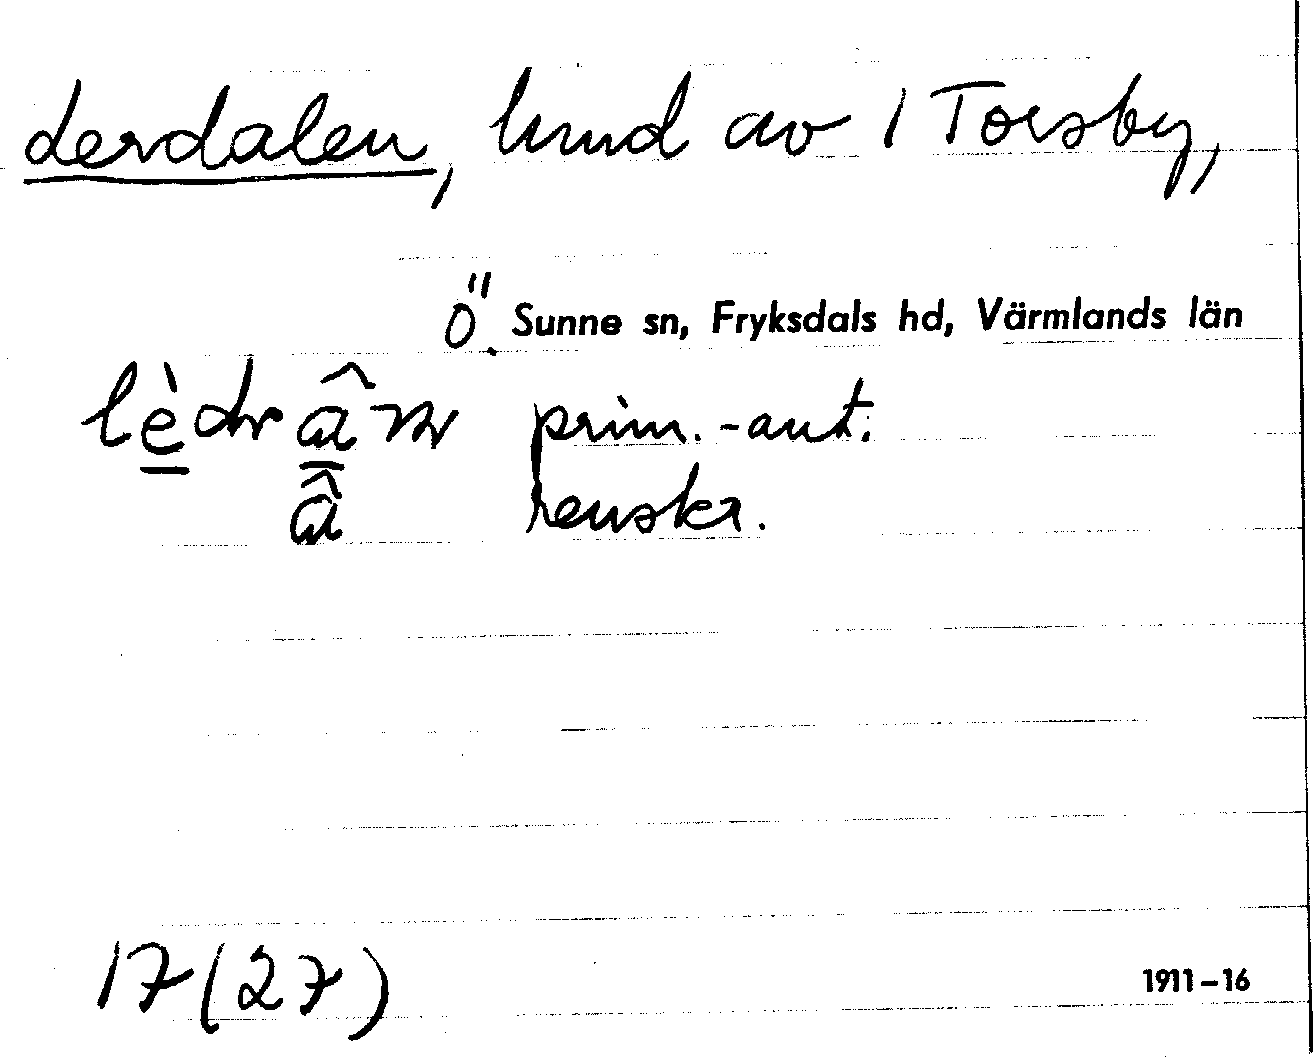 Lerdalen, hmd av 1 Torsby,
Ö. Sunne sn, Fryksdals hd, Värmlands län
prim.-ant.
renskr.
17(27)
1911–16